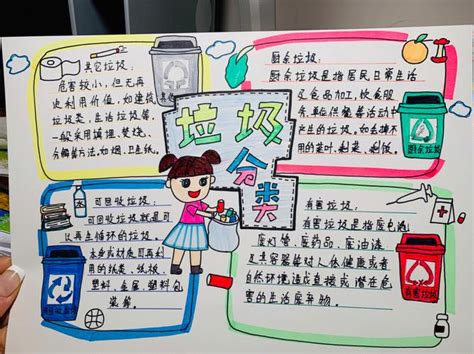 其它垃圾:
危害较小,但无再
次利用价值,如建筑
垃圾类,生活垃圾等,
一般采用填埋、焚烧、
分解等方法,如烟、卫生纸。
厨余垃圾:
厨余垃圾是指居民日常生活
及食品加工、饮食服
务、单位供餐等活动中
产生的垃圾,如丢掉不
用的菜叶、剩菜、剩饭。
厨余垃圾
垃圾
分类
可回收垃圾:
可回收垃圾就是可
以再生循环的垃圾。
本身或材质可再利
用的纸类、纸板、
塑料、金属、塑料包
装等。
有害垃圾:
有害垃圾是指废电池、
废灯管、医药品、废油漆
及其容器等对人体健康或者
自然环境造成直接或潜在危
害的生活废弃物。
有害垃圾